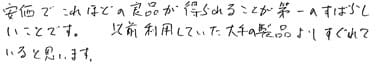 安価でこれほどの良品が得られることが第一のすばらし
いことです。 以前利用していた大手の製品よりすぐれて
いると思います。